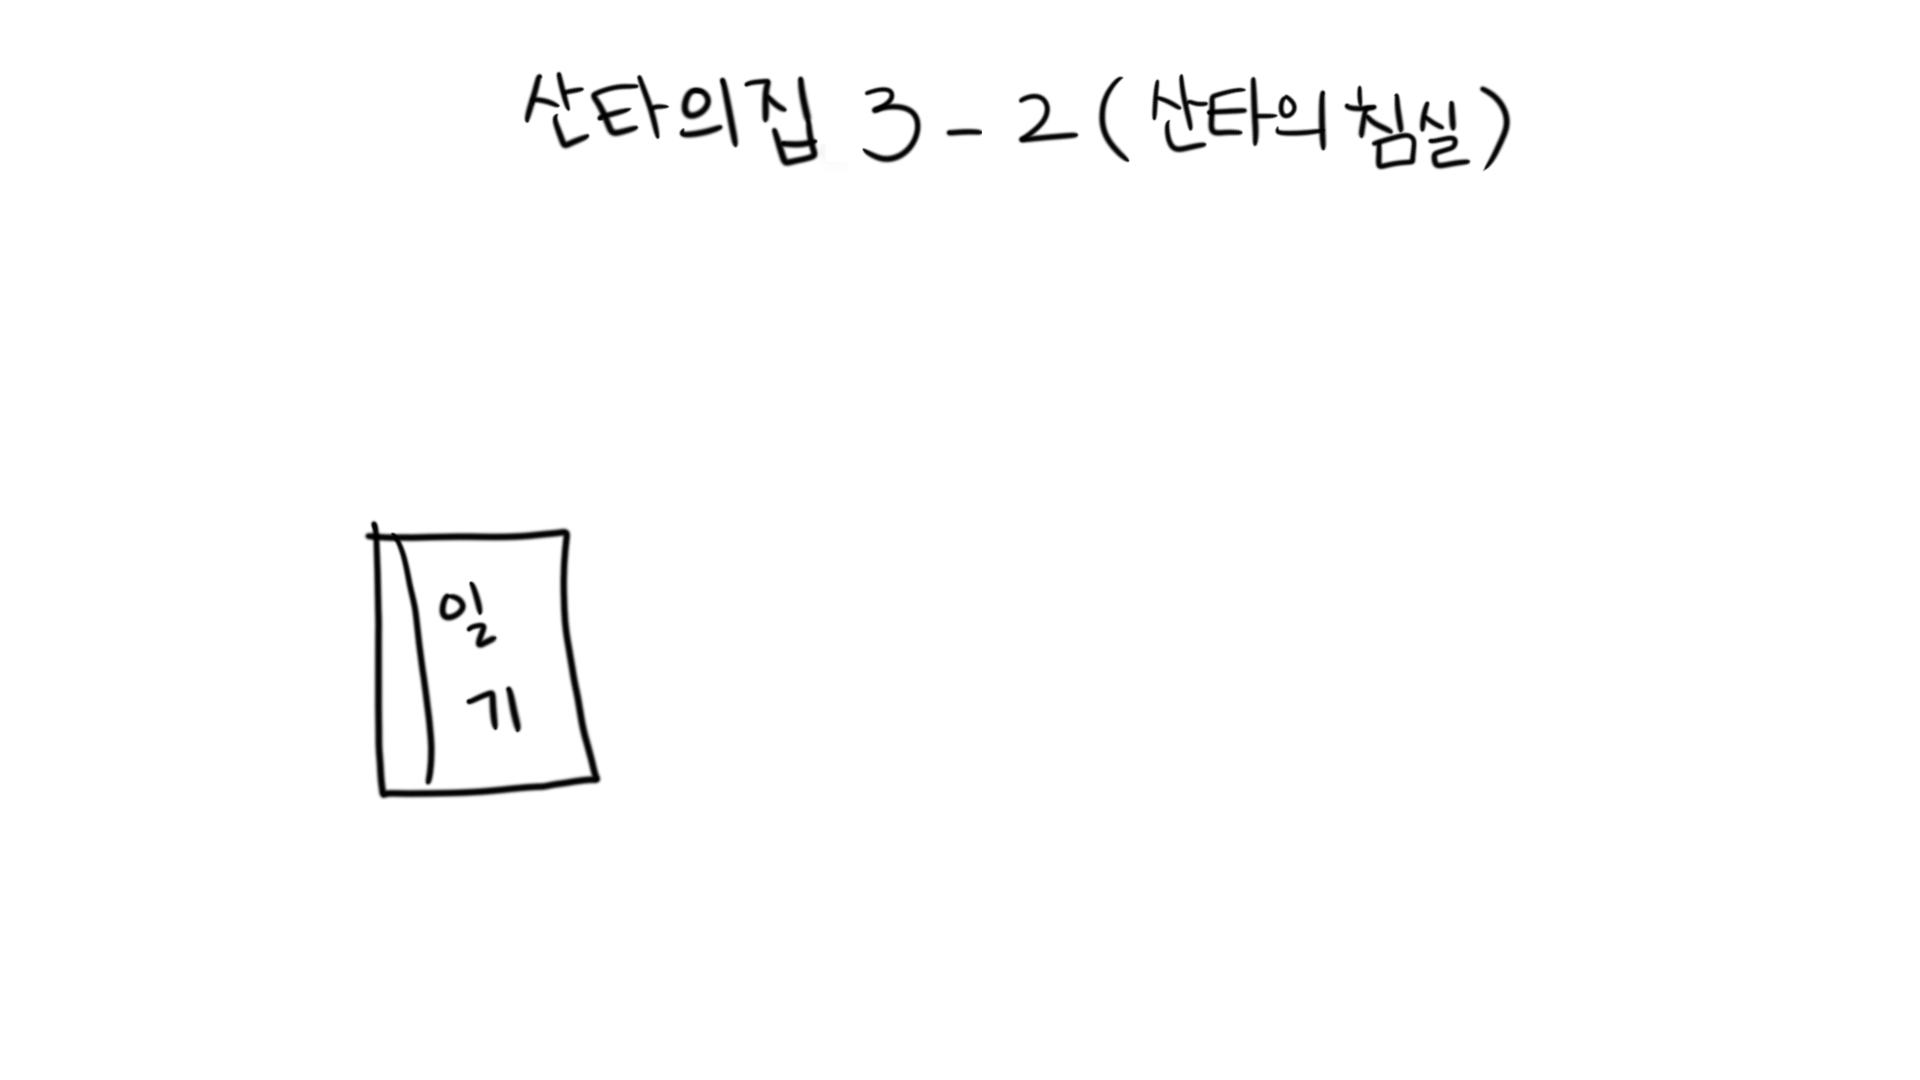 산타의집 3-2(산타의 침실)
일
기